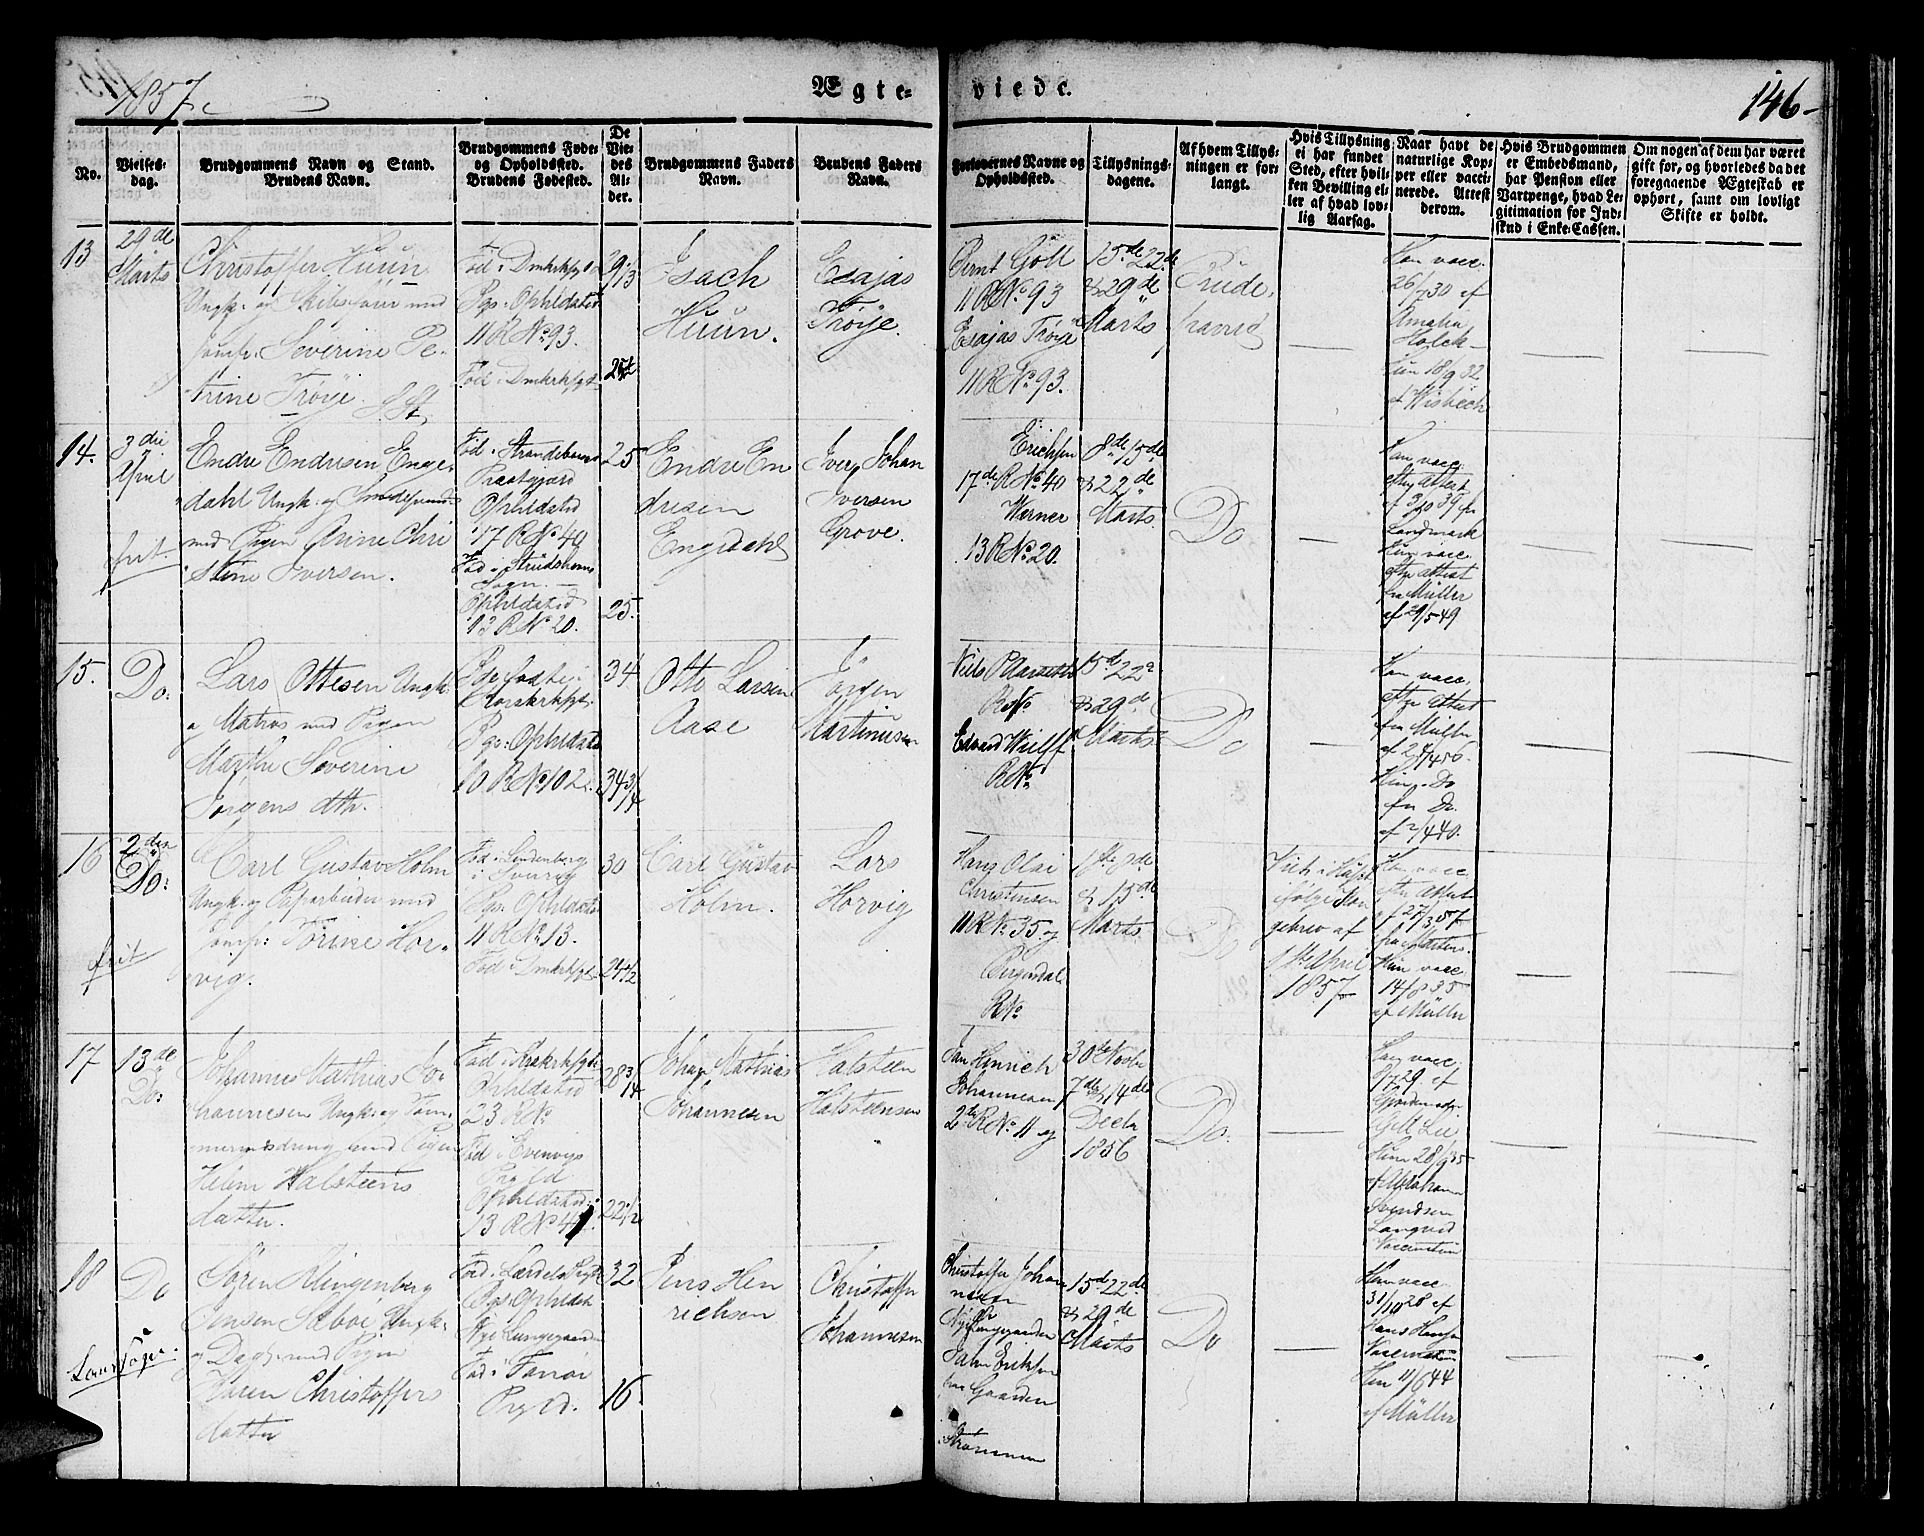 1857.
Ægte-
viede.
146
No.
Vielses-
dag.
Brudgommens Navn og Stand.
Brudens Navn.
Brudgommens Føde-
og Opholdssted.
Brudens Fødested.
De
Vie-
des
Al-
der.
Brudgommens Faders
Navn.
Brudens Faders
Navn.
Forlovernes Navne og
Opholdssted.
Tillysnings-
dagene.
Af hvem Tillys-
ningen er for-
langt.
Hvis Tillysning
ei har fundet
Sted, efter hvil-
ken Bevilling el-
ler af hvad lov-
lig Aarsag.
Naar havt de
naturlige Kop-
per eller vacci-
nerede. Attest
derom.
Hvis Brudgommen
er Embedsmand,
har Pension eller
Vartpenge, hvad Le-
gitimation for Ind-
skud i Enke-Cassen.
Om nogen af dem har været
gift før, og hvorledes da det
foregaaende Ægteskab er
ophørt, samt om lovligt
Skifte er holdt.
13
29de
Marts
Christoffer Huun
Ungk. og Skibsfører med
Jomfr. Severine Pe-
trine Trøye.
Fød i Dmkrksgt
Pgs. Ophldsted
11 R No. 93.
Fød i Dmkrksgt
Isach
Huun.
Esajas
Trøye.
Bernt Göll
11 R No. 93
Esajas Trøye
11 R No. 93.
15de 22de
& 29de
Marts
Brude-
parret
Han vacc.
26/7 30 af
Amalia
Holck
Hun 18/9 32
af Wisbech
14.
3die
April
frit.
Endre Endresen Enge-
dahl Ungk. og Smedesvend
med Pigen Anne Chri
stine Iversen.
Fød i Strandebarms
Præstgjæld
Ophldsted
17 R No 40
Sogn.
Ophldsted
13 R No 20.
25
25.
Endre En
dresen
Engedahl
Iver Johan
Iversen
Grove.
Erichsen
17de R No 40
Werner
13 R No 20.
8de 15de
& 22de
Marts.
Do
Han vacc.
efter Attest
af 3/10 39 fra
Landmark
Hun vacc.
efter Attest
fra Müller
af 29/5 49
15.
Do:
Lars Ottesen Ungk.
og Matros med Pigen
Marthe Severine
Jørgens dtr.
Begge fødte i
Korskrksgt.
Bgs. Ophldsted
10 R No 102.
34
34 3/4
Otto Larsen
Aase
Jørgen
Martinussen
Niels
R No
Edvard Wulff
R No
15de 22de
& 29de
Marts
Do
Han vacc.
efter Attest
fra Müller
Hun Do
fra Do.
af 2/4 40.
16
2den
Do:
frit
Carl Gustav Holm
Ungk. og Papparbeider med
Jomfr: Torine Hor-
vig.
Fød i Lindenberg
i Sverrig
Bgs. Ophldsted
11 R No 13.
Fød i Dmkrksgt
30
24 1/2
Carl Gustav
Holm.
Lars
Horvig
Hans Olai
Christensen
11 R No. 35. og
R No
1ste 8de
& 15de
Marts
Do
Viet i Huset
ifølge Kon
gebrev af
1ste April
1857
Han vacc.
efter Attest
af 27/3 57
fra Martens.
Hun vacc.
14/8 35
af Müller
17
13de
Do:
Johannes Mathias Jo-
hannesen Ungk. og Tøm-
mermedreng med Pigen
Helene Halsteens
datter.
Fød i Krskrksgt
Ophldsted
23 R No
Fød i Evenvigs
Prgjld
Ophldsted
13 R No 41.
28 3/4
22 1/2
Johan Mathias
Johannesen
Halsteen
Halsteensen
Jan Henrich
Johannesen
2de R No 11 og
30te Novbr
7de & 14de
Decbr
1856
Do.
Han vacc.
af
Hun 28/9 35
af Abraham
Svendsen
Langved
Vaccinateur
18
Do
Søren Klingenberg
Jensen Sæbøe Ungk.
og Dagk. med Pigen
Karen Christoffers
datter
Fød i Lærdals Prgjld
Bgs. Ophldsted
Nye Lungegaarden
Fød i Førde
Prgjld.
32
16
Jens Hen
richsen
Christoffer
Johannesen
Christoffer Johan
nesen
Nye Lungegaarden
Eriksen
Gaarden
Strømmen
15de 22de
& 29de
Marts
Do
Han vacc.
31/10 28 af
Hans Hansen
Vaccinateur
Hun 11/6 44
af Müller